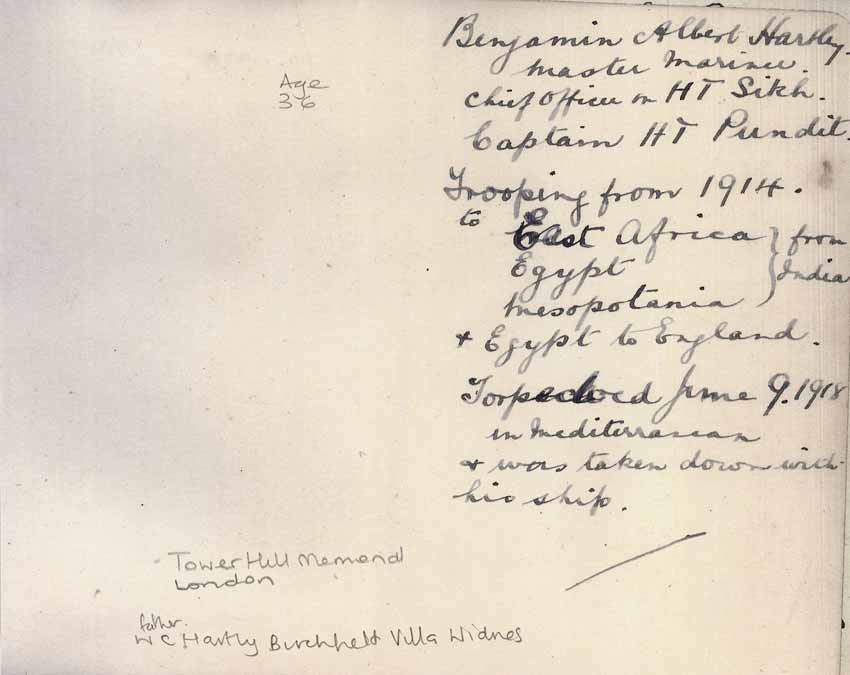 Benjamin Albert Hartley.
Master Mariner.
Chief Officer on HT Sikh.
Captain HT Pundit.
Age
36
Trooping from 1914.
to East Africa } from
Egypt } India
Mesopotania
+ Egypt to England.
Torpedoed June 9. 1918
in Mediterranean
+ was taken down with
his ship.
Tower Hill Memorial
London
father.
W C Hartly Birchfield Villa Widnes